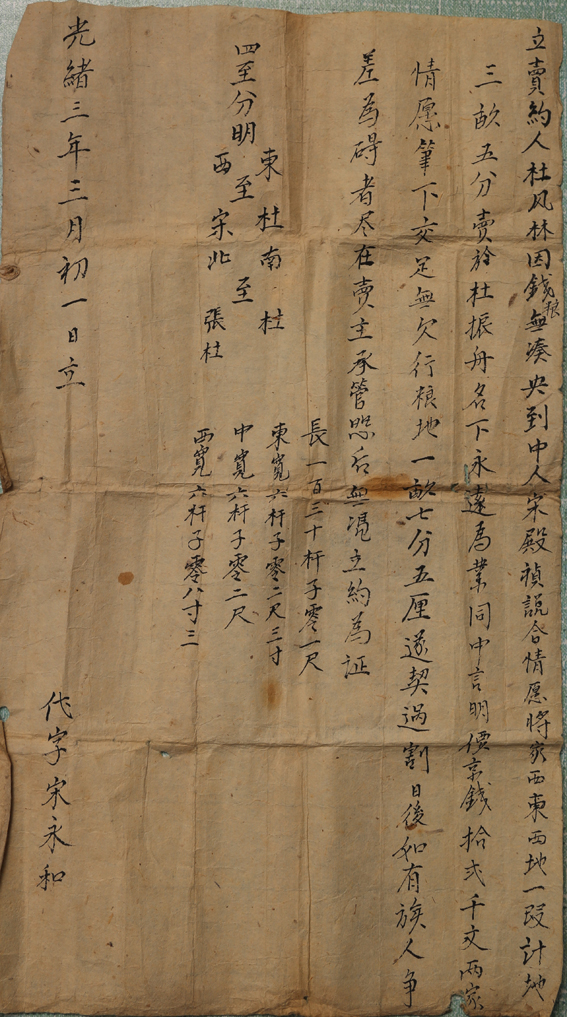 立賣約人杜凡林因錢粮無凑央到中人宋殿禎説合情愿將家西東西地一段計地
三畝五分賣於杜振舟名下永遠為業同中言明價京錢拾弍千文兩家
情愿筆下交足無欠行粮地一畝七分五厘遂契過割日後如有族人争
差為碍者尽在賣主承管恐后無凴立約為証
長一百三十杆子零一尺
東寬六杆子零二尺三寸
中寬六杆子零二尺
西寬六杆子零八寸三
四至分明
東杜南杜
至至
西宋北張杜
光緒三年三月初一日立
代字宋永和